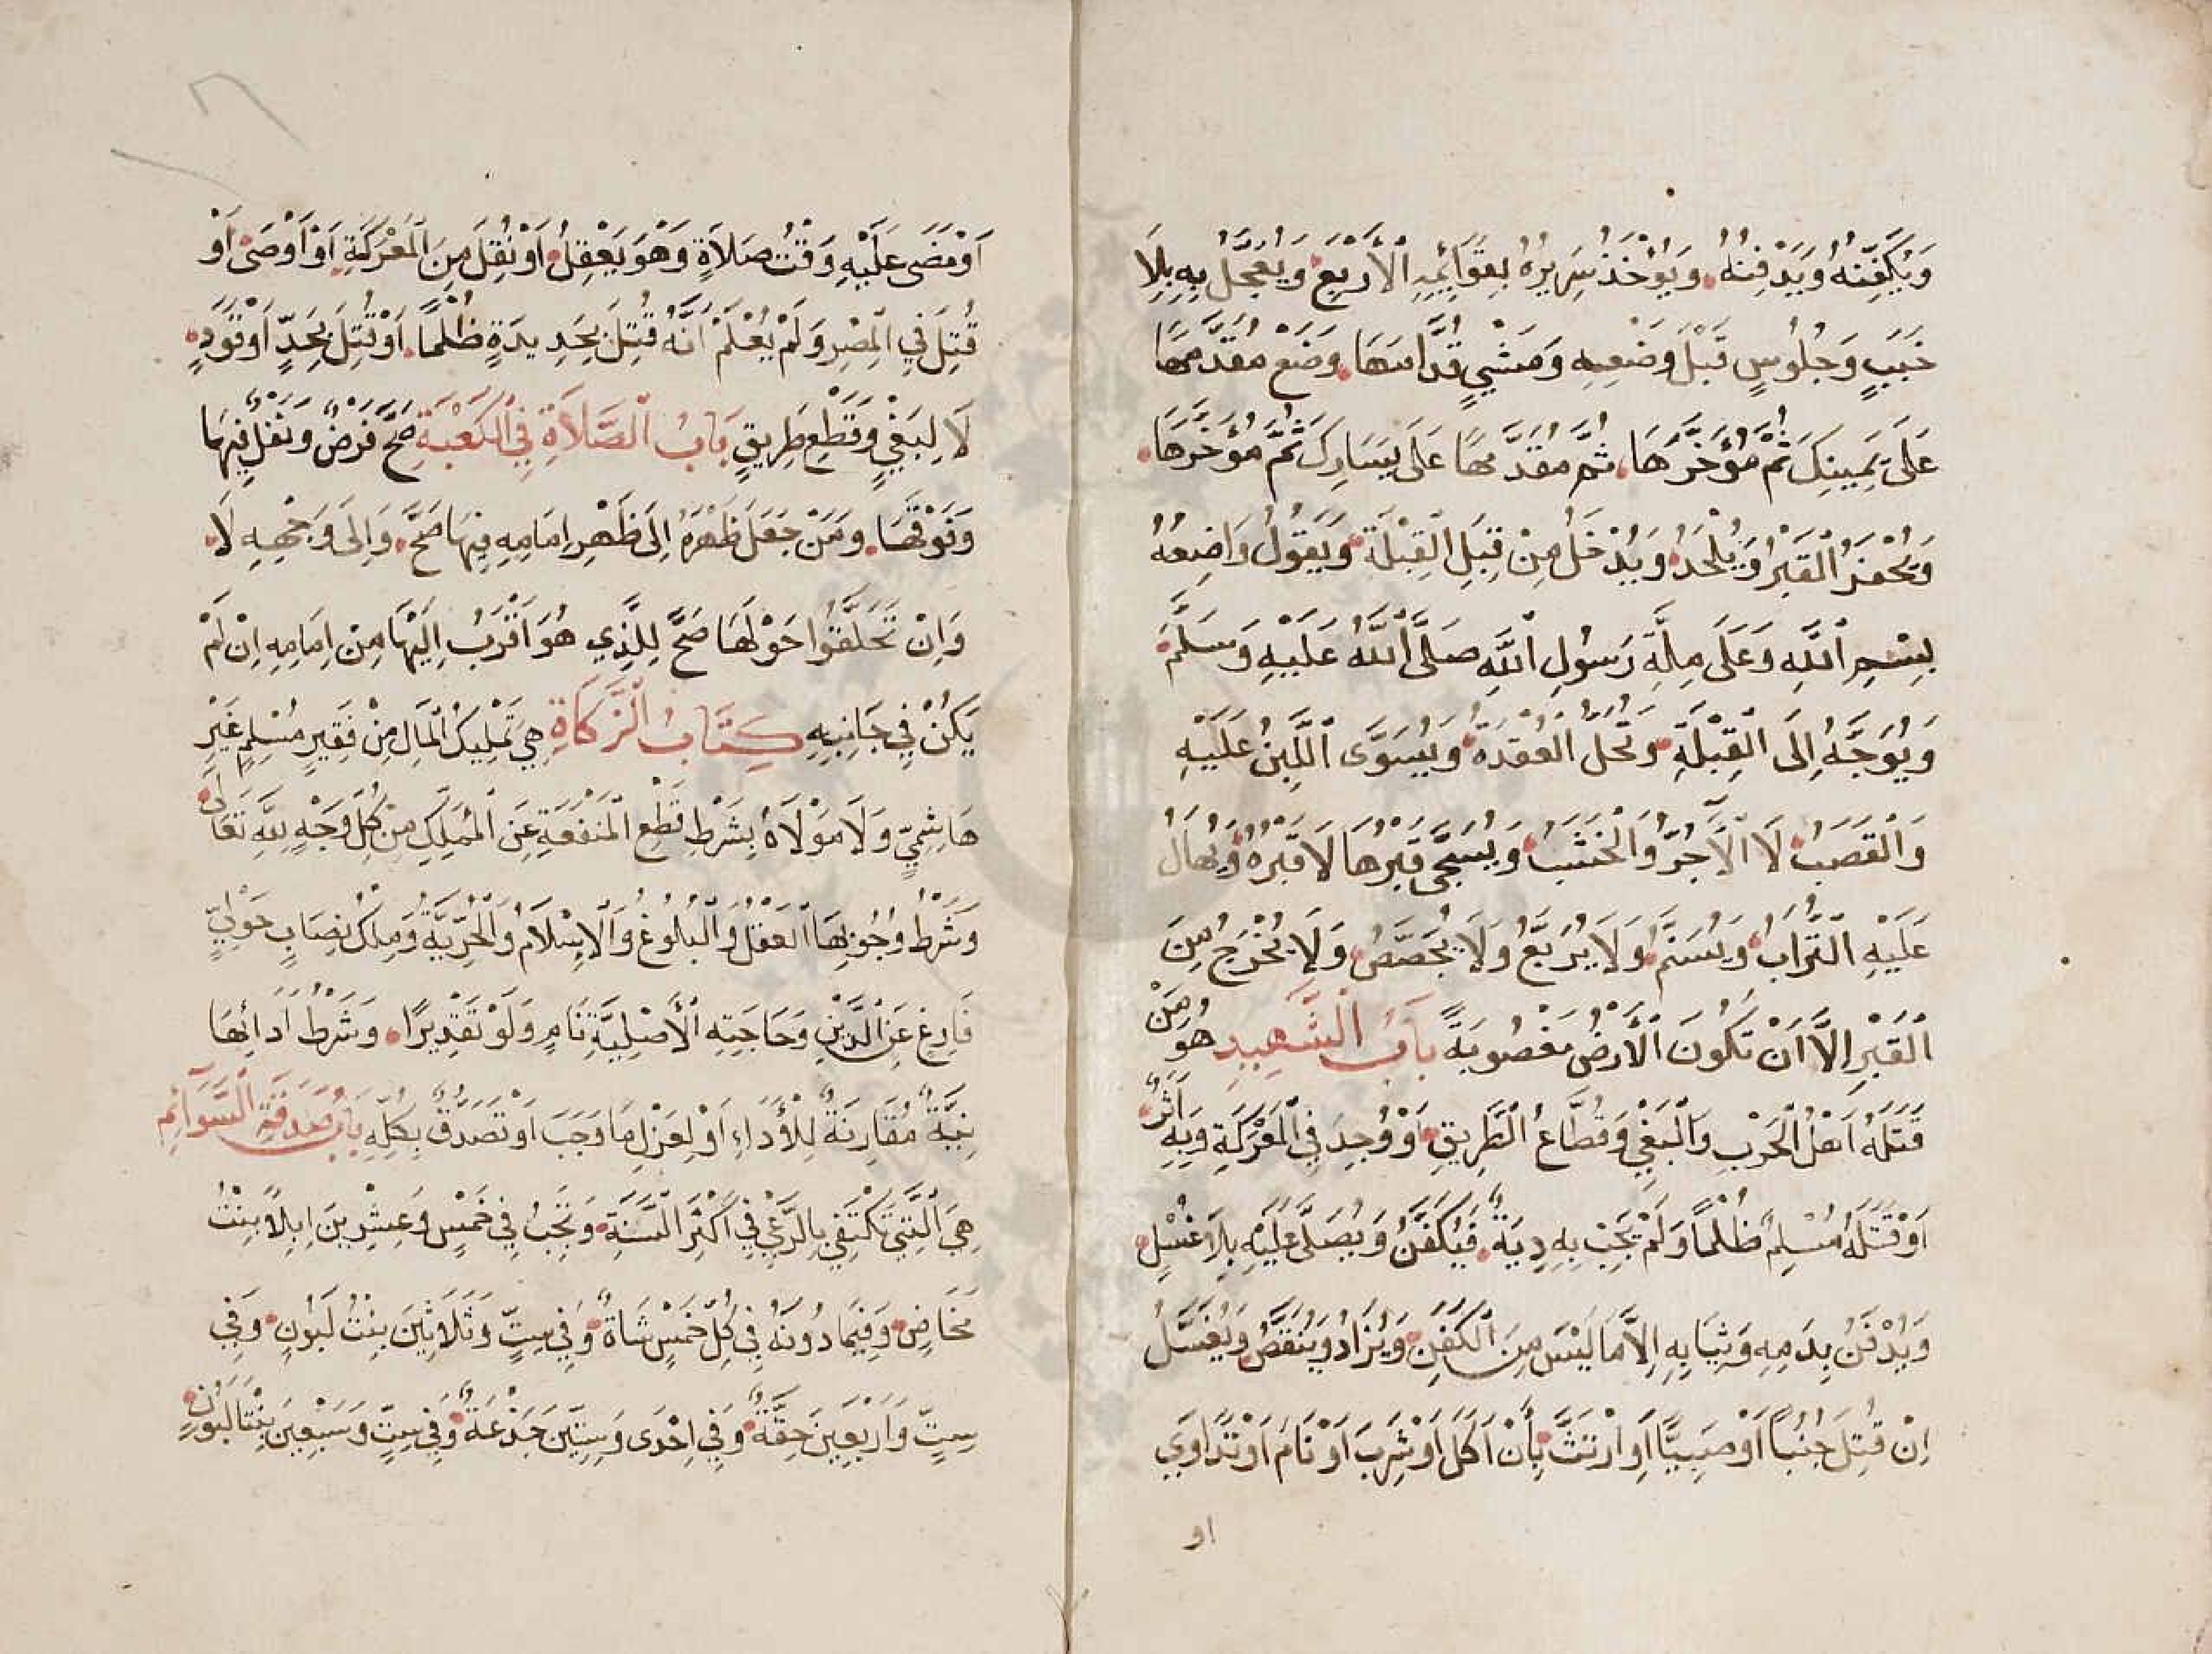 وَيُكَفِّنَهُ وَيَدْفِنَهُ وَيُؤْخَذُ سَرِيرُهُ بِقَوَائِمِهِ الْأَرْبَعِ وَيُعَجَّلُ بِهِ بِلَا
خَبَبٍ وَجُلُوسٍ قَبْلَ وَضْعِهِ وَمَشْيٍ قُدَّامَهَا وَضَعْ مُقَدَّمَهَا
عَلَى يَمِينِكَ ثُمَّ مُؤَخَّرَهَا ثُمَّ مُقَدَّمَهَا عَلَى يَسَارِكَ ثُمَّ مُؤَخَّرَهَا
وَيُحْفَرُ الْقَبْرُ وَيُلْحَدُ وَيُدْخَلُ مِنْ قِبَلِ الْقِبْلَةِ وَيَقُولُ وَاضِعُهُ
بِسْمِ اللَّهِ وَعَلَى مِلَّةِ رَسُولِ اللَّهِ صَلَّى اللَّهُ عَلَيْهِ وَسَلَّمَ
وَيُوَجَّهُ إِلَى الْقِبْلَةِ وَتُحَلُّ الْعُقْدَةُ وَيُسَوَّى اللَّبِنُ عَلَيْهِ
وَالْقَصَبُ لَا الْآجُرُّ وَالْخَشَبُ وَيُسَجَّى قَبْرُهَا لَا قَبْرُهُ وَيُهَالُ
عَلَيْهِ التُّرَابُ وَيُسَنَّمُ وَلَا يُرَبَّعُ وَلَا يُجَصَّصُ وَلَا يُخْرَجُ مِنَ
الْقَبْرِ إِلَّا أَنْ تَكُونَ الْأَرْضُ مَغْصُوبَةً بَابُ الشَّهِيدِ هُوَ مَنْ
قَتَلَهُ أَهْلُ الْحَرْبِ وَالْبَغْيِ وَقُطَّاعُ الطَّرِيقِ أَوْ وُجِدَ فِي الْمَعْرَكَةِ وَبِهِ أَثَرٌ
أَوْ قَتَلَهُ مُسْلِمٌ ظُلْمًا وَلَمْ تَجِبْ بِهِ دِيَةٌ فَيُكَفَّنُ وَيُصَلَّى عَلَيْهِ بِلَا غُسْلٍ
وَيُدْفَنُ بِدَمِهِ وَثِيَابِهِ إِلَّا مَا لَيْسَ مِنَ الْكَفَنِ وَيُزَادُ وَيُنْقَصُ وَيُغَسَّلُ
إِنْ قُتِلَ جُنُبًا أَوْ صَبِيًّا أَوِ ارْتَثَّ بِأَنْ أَكَلَ أَوْ شَرِبَ أَوْ نَامَ أَوْ تَدَاوَى
او
أَوْ مَضَى عَلَيْهِ وَقْتُ صَلَاةٍ وَهُوَ يَعْقِلُ أَوْ نُقِلَ مِنَ الْمَعْرَكَةِ أَوْ أَوْصَى أَوْ
قُتِلَ فِي الْمِصْرِ وَلَمْ يُعْلَمْ أَنَّهُ قُتِلَ بِحَدِيدَةٍ ظُلْمًا أَوْ قُتِلَ بِحَدٍّ أَوْ قَوَدٍ
لَا لِبَغْيٍ وَقَطْعِ طَرِيقٍ بَابُ الصَّلَاةِ فِي الْكَعْبَةِ صَحَّ فَرْضٌ وَنَفْلٌ فِيهَا
وَفَوْقَهَا وَمَنْ جَعَلَ ظَهْرَهُ إِلَى ظَهْرِ إِمَامِهِ فِيهَا صَحَّ وَإِلَى وَجْهِهِ لَا
وَإِنْ تَحَلَّقُوا حَوْلَهَا صَحَّ لِلَّذِي هُوَ أَقْرَبُ إِلَيْهَا مِنْ إِمَامِهِ إِنْ لَمْ
يَكُنْ فِي جَانِبِهِ كِتَابُ الزَّكَاةِ هِيَ تَمْلِيكُ الْمَالِ مِنْ فَقِيرٍ مُسْلِمٍ غَيْرِ
هَاشِمِيٍّ وَلَا مَوْلَاهُ بِشَرْطِ قَطْعِ الْمَنْفَعَةِ عَنِ الْمُمَلِّكِ مِنْ كُلِّ وَجْهٍ لِلَّهِ تَعَالَى
وَشَرْطُ وُجُوبِهَا الْعَقْلُ وَالْبُلُوغُ وَالْإِسْلَامُ وَالْحُرِّيَّةُ وَمِلْكُ نِصَابٍ حَوْلِيٍّ
فَارِغٍ عَنِ الدَّيْنِ وَحَاجَتِهِ الْأَصْلِيَّةِ نَامٍ وَلَوْ تَقْدِيرًا وَشَرْطُ أَدَائِهَا
نِيَّةٌ مُقَارِنَةٌ لِلْأَدَاءِ أَوْ لِعَزْلِ مَا وَجَبَ أَوْ تَصَدُّقٌ بِكُلِّهِ بَابُ صَدَقَةِ السَّوَائِمِ
هِيَ الَّتِي تَكْتَفِي بِالرَّعْيِ فِي أَكْثَرِ السَّنَةِ وَتَجِبُ فِي خَمْسٍ وَعِشْرِينَ إِبِلًا بِنْتُ
مَخَاضٍ وَفِيمَا دُونَهُ فِي كُلِّ خَمْسٍ شَاةٌ وَفِي سِتٍّ وَثَلَاثِينَ بِنْتُ لَبُونٍ وَفِي
سِتٍّ وَأَرْبَعِينَ حِقَّةٌ وَفِي إِحْدَى وَسِتِّينَ جَذَعَةٌ وَفِي سِتٍّ وَسَبْعِينَ بِنْتَا لَبُونٍ